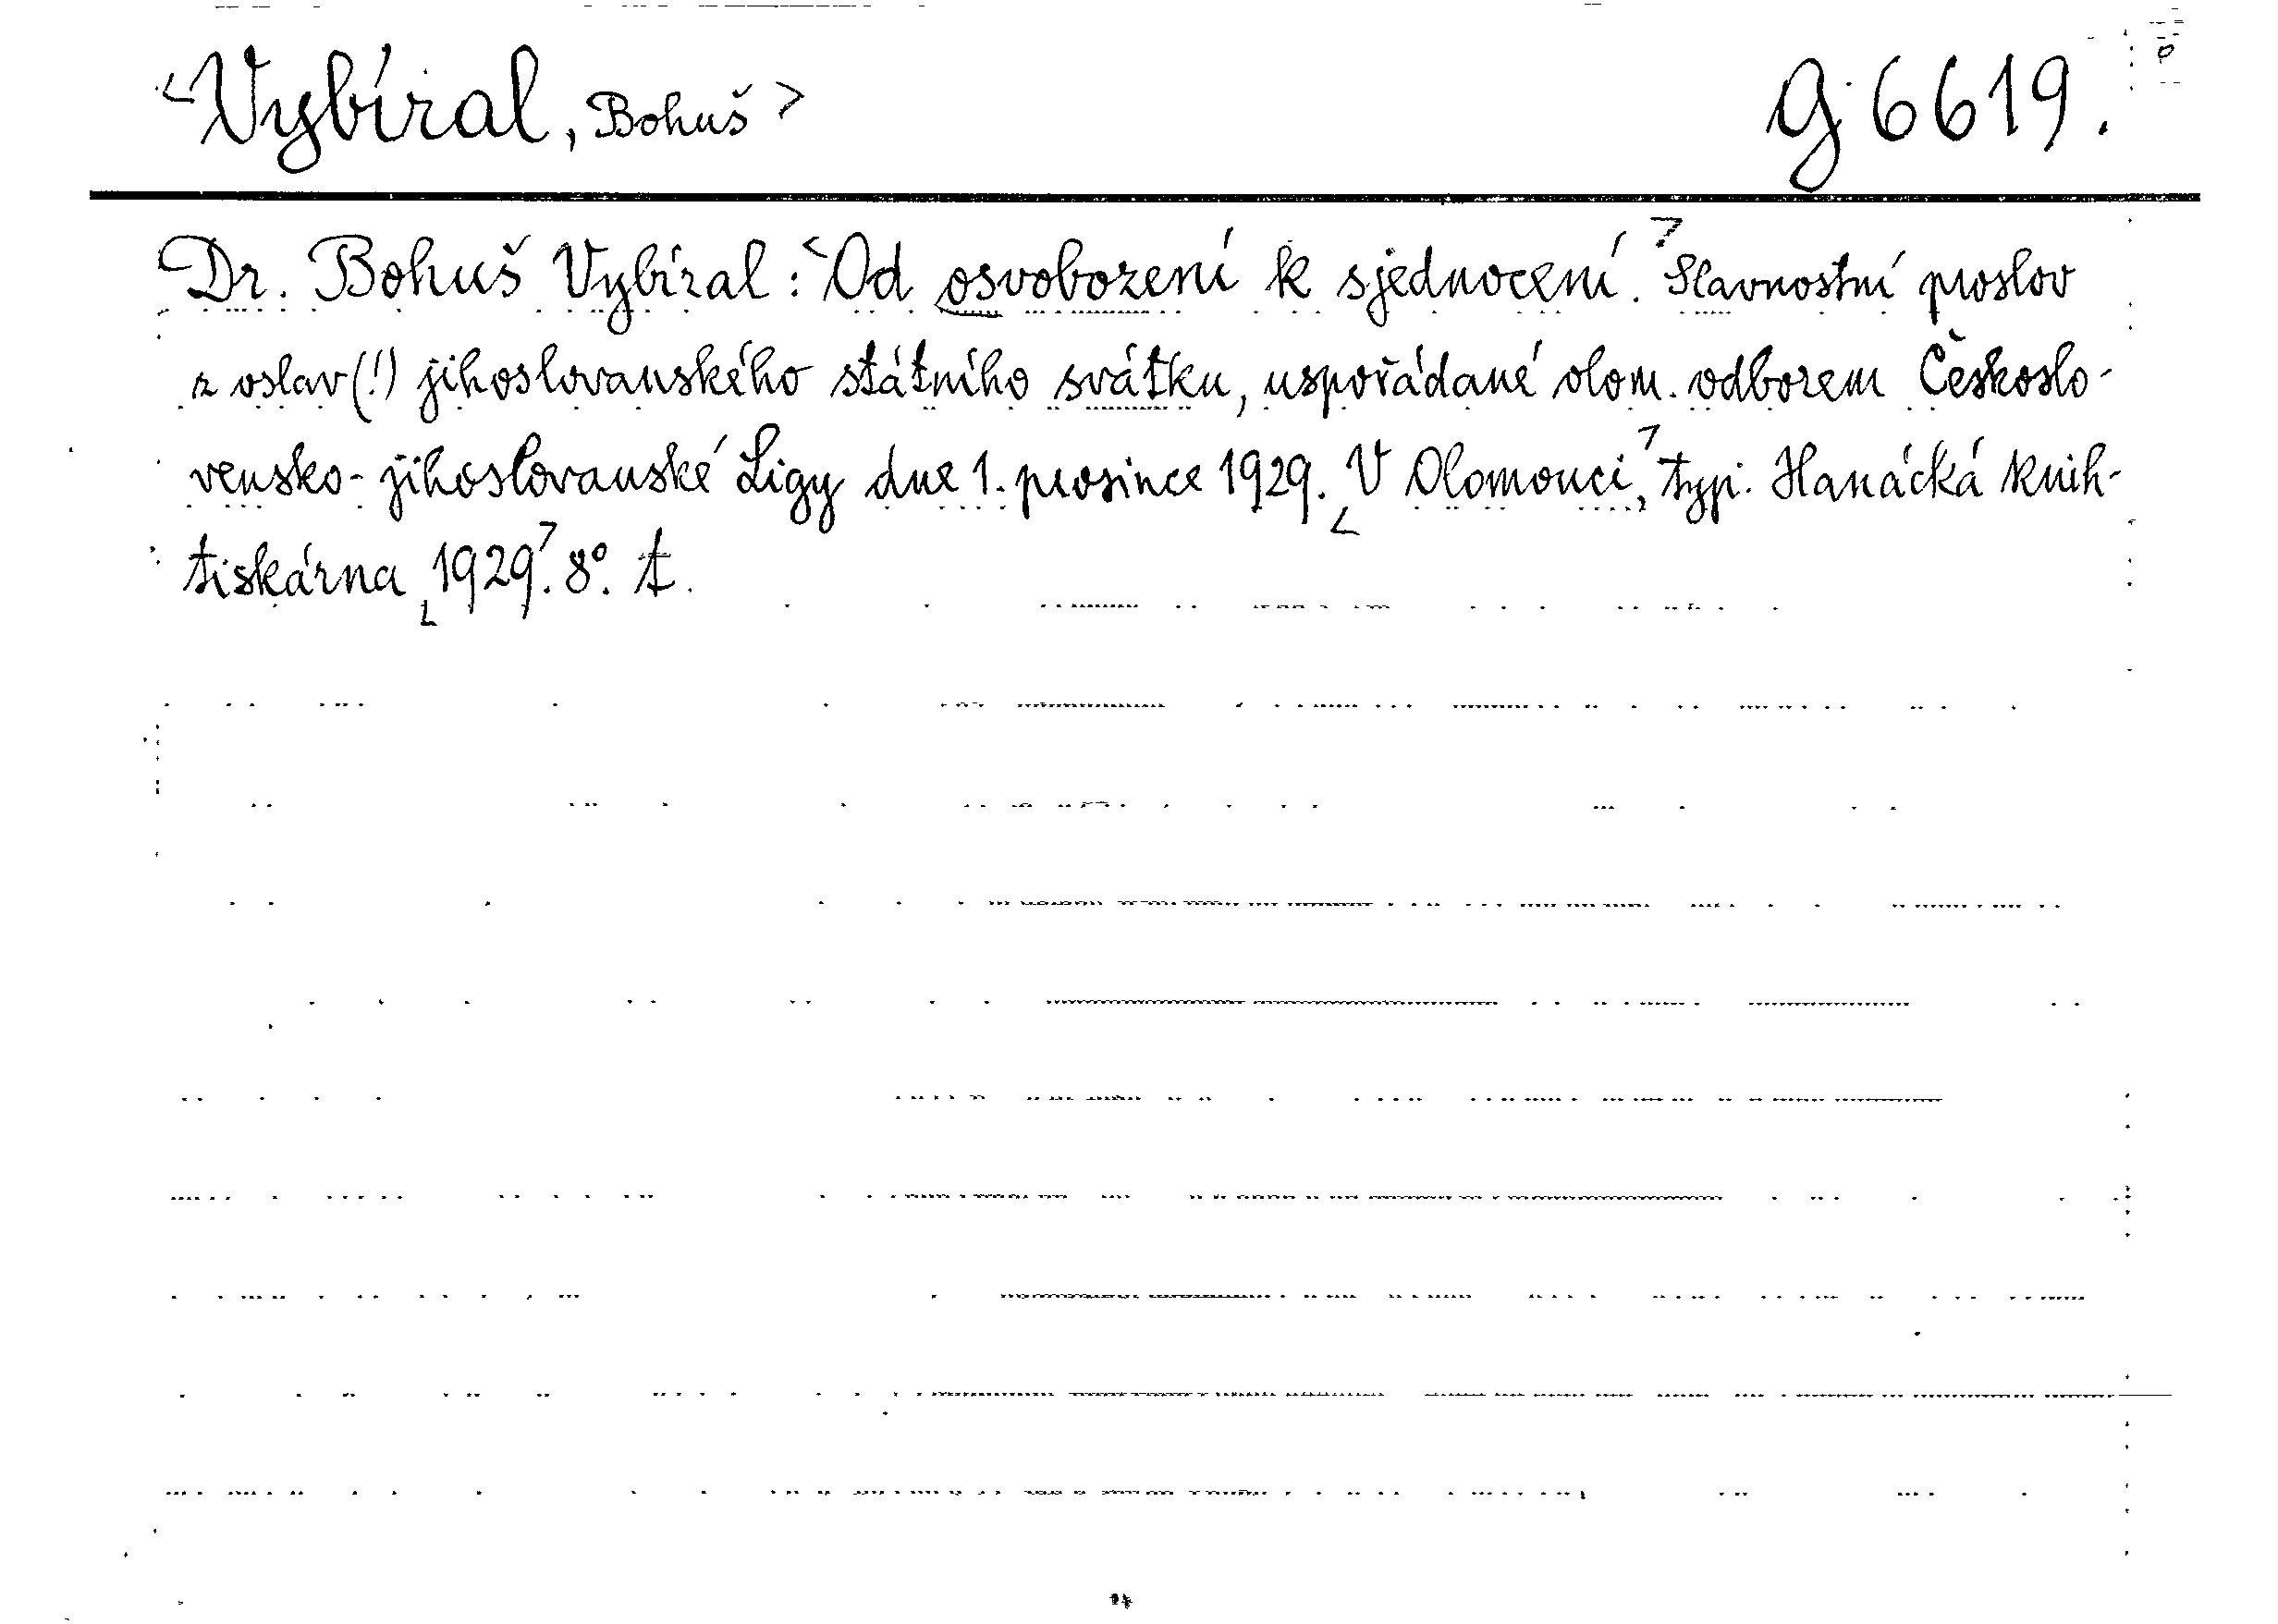 <Vybíral, Bohuš> g 6619.
Dr. Bohuš Vybíral: <Od osvobození k sjednocení.> Slavnostní proslov
z oslav(!) jihoslovanského státního svátku, uspořádané olom. odborem Českoslo-
vensko-jihoslovanské Ligy dne 1. prosince 1929. <V Olomouci,> typ. Hanácká knih-
tiskárna <1929>. 8°. t.